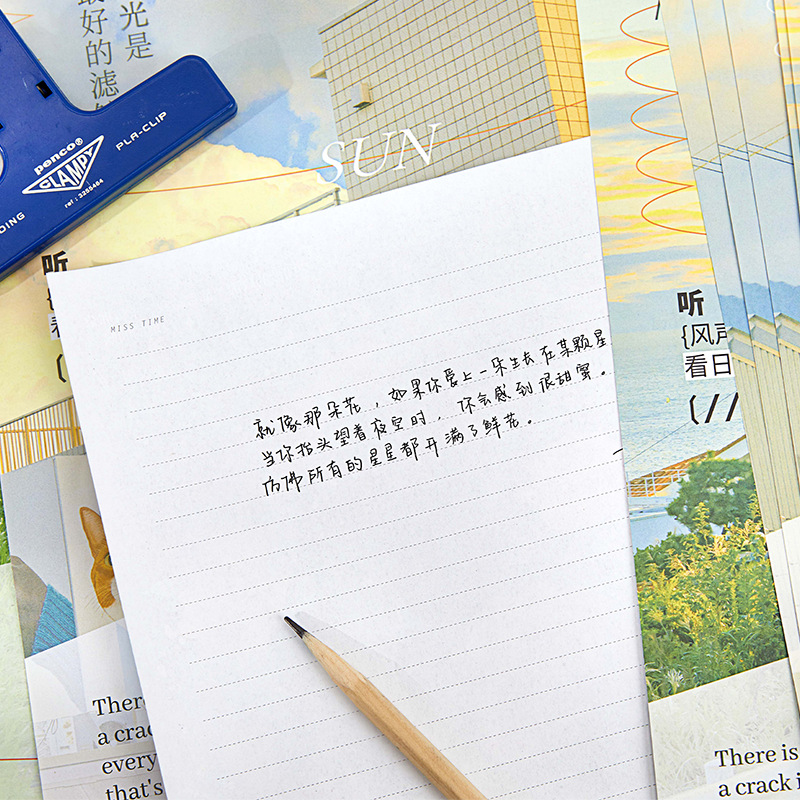 光是
最好的滤
penco®
CLAMPY
PLA-CLIP
ref : 3255464
DING
SUN
听
看
(
MISS TIME
就像那朵花，如果你爱上一朵生长在某颗星
当你抬头望着夜空时，你会感到很甜蜜。
仿佛所有的星星都开满了鲜花。
听
{风声
看日
(//
There
a crac
every
that's
There is
a crack i